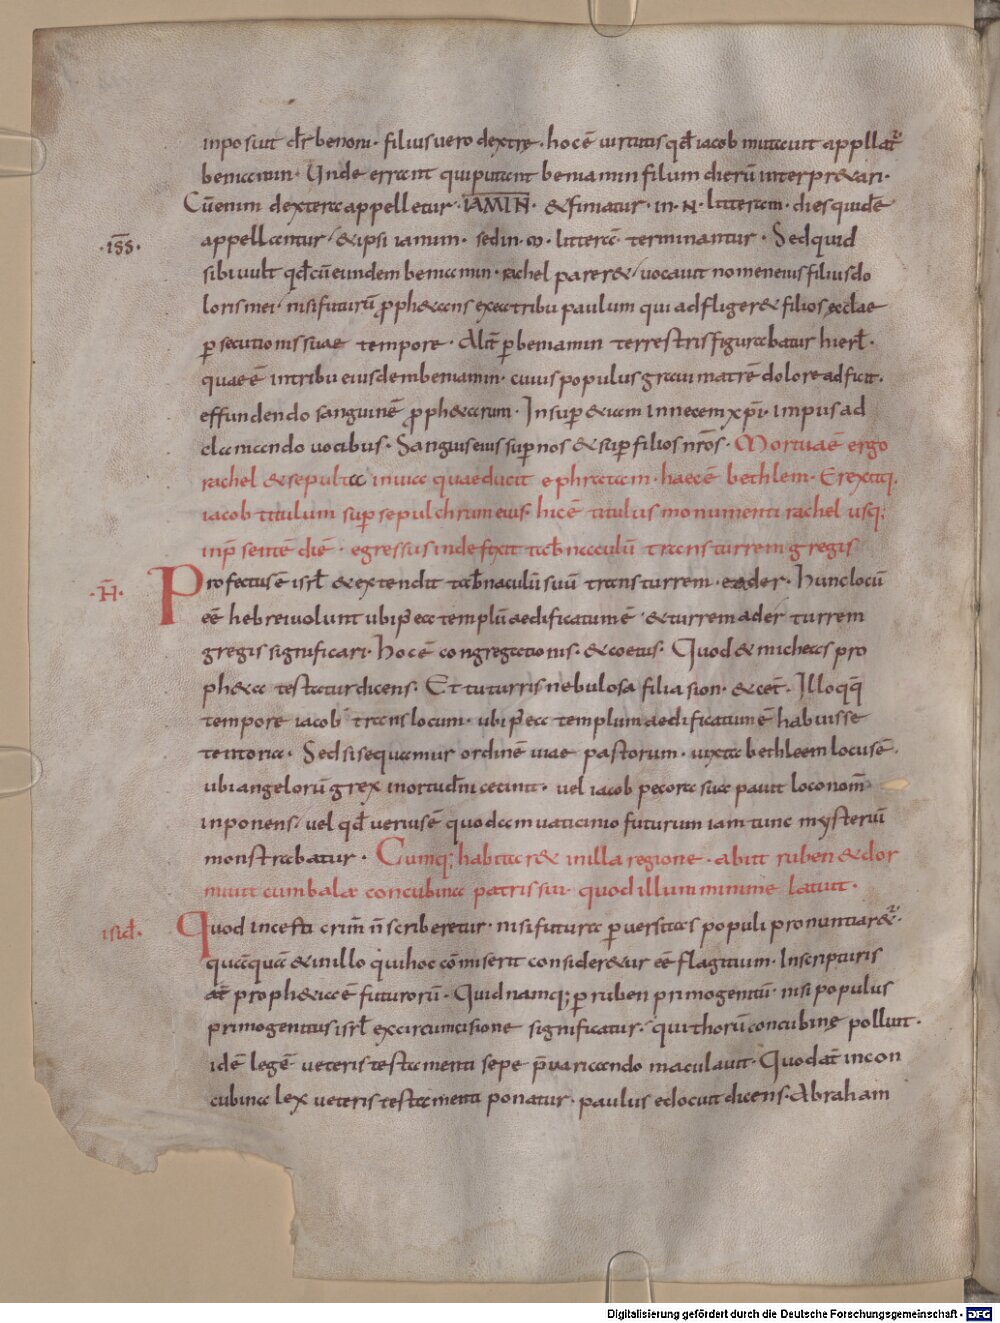 inposuit dr̄ benoni · filius uero dextrę · hoc ē uirtutis qđ iacob mutauit appellat̄ᷣ
beniamin · Unde errant qui putant beniamin filium dierū interpr&ari ·
Cū enim dextera appelletur · IAMIN · & finiatur · in · N · litteram · dies quidē
·iss̄· appellantur / & ipsi iamim · sed in · m · litterā terminantur · Sed quid
sibi uult qđ cū eundem beniamin · rachel parer& / uocauit nomen eius filius do
loris mei / nisi futurū ꝓph&ans ex ea tribu paulum qui adfliger& filios ecclae
ꝑsecutionis suae tempore · Alit̄ ꝑ beniamin terrestris figurabatur hierl̄ ·
quae ē in tribu eiusdem beniamin · cuius populus graui matrē dolore adficit ·
effundendo sanguinē ꝓph&arum · Insuꝑ &iam in necem xp̄i · impiis ad
clamando uocibus · Sanguis eius suꝑ nos & suꝑ filios nr̄os · Mortua ē ergo
rachel & sepulta in uia quae ducit ephratam · haec ē bethlem · Erexitq·
iacob titulum suꝑ sepulchrum eius · hic ē titulus monumenti rachel usq;
in p̄sentē diē · egressus inde fixit tab̄naculū trans turrem gregis
·H̄· Profectus ē isrl̄ & extendit tab̄naculū suū trans turrem · eader · Hunc locū
eē hebrei uolunt ubi p̄ea templū aedificatum ē · & turrem ader turrem
gregis significari · Hoc ē congregationis · & coetus · Quod & micheas pro
ph&a testatur dicens · Et tu turris nebulosa filia sion · & cet̄ · Illo qq̄
tempore iacob trans locum · ubi p̄ea templum aedificatum ē habuisse
tentoria · Sed si sequamur ordinē uiae pastorum · iuxta bethleem locus ē ·
ubi angelorū grex in ortu dn̄i cecinit · uel iacob pecora sua pauit loco nom̄
inponens · uel qđ uerius ē quodam uaticinio futurum iam tunc mysteriū
monstrabatur · Cumq; habitar& in illa regione · abiit ruben & dor
miuit cum bala concubina patris sui · quod illum minime latuit ·
isid̄ · Quod incesti crim̄ n̄ scriberetur · nisi futura ꝑuersitas populi pronuntiar&ᷣ ·
quāquā & in illo qui hoc cōmiserit consider&ur eē flagitium · In scripturis
at̄ proph&ia ē futurorū · Quid namq; ꝑ ruben primogenitū · nisi populus
primogenitus isrl̄ ex circumcisione significatur · qui thorū concubinę polluit ·
idē legē ueteris testamenti sepe p̄uaricando maculauit · Quod at̄ in con
cubina lex ueteris testamenti ponatur · paulus edocuit dicens · Abraham
Digitalisierung gefördert durch die Deutsche Forschungsgemeinschaft · DFG